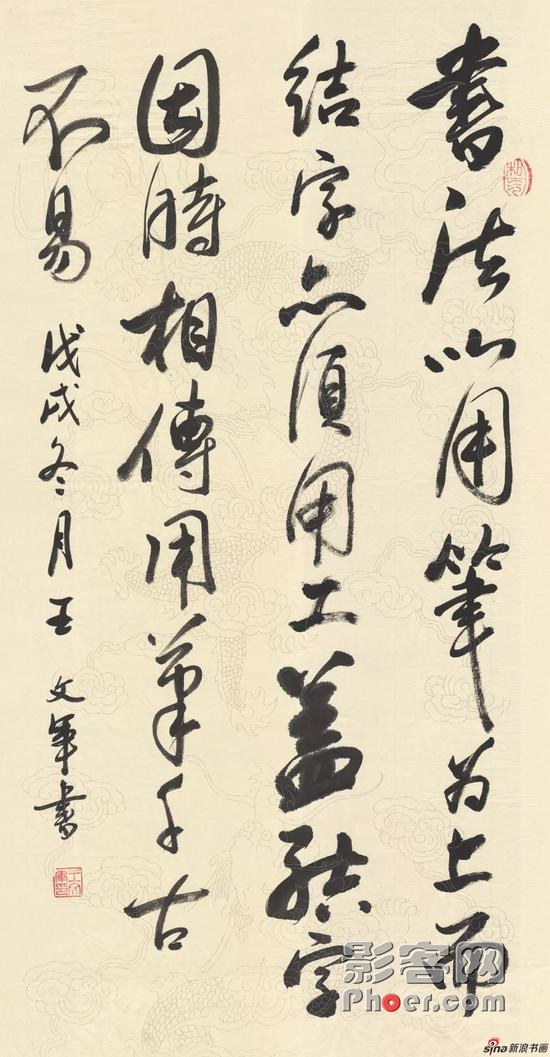 書法以用筆为上而
結字亦須用工盖結字
因時相傳用筆千古
不易 戊戌冬月王文軍書
影客网
Phoer.com
sina新浪书画